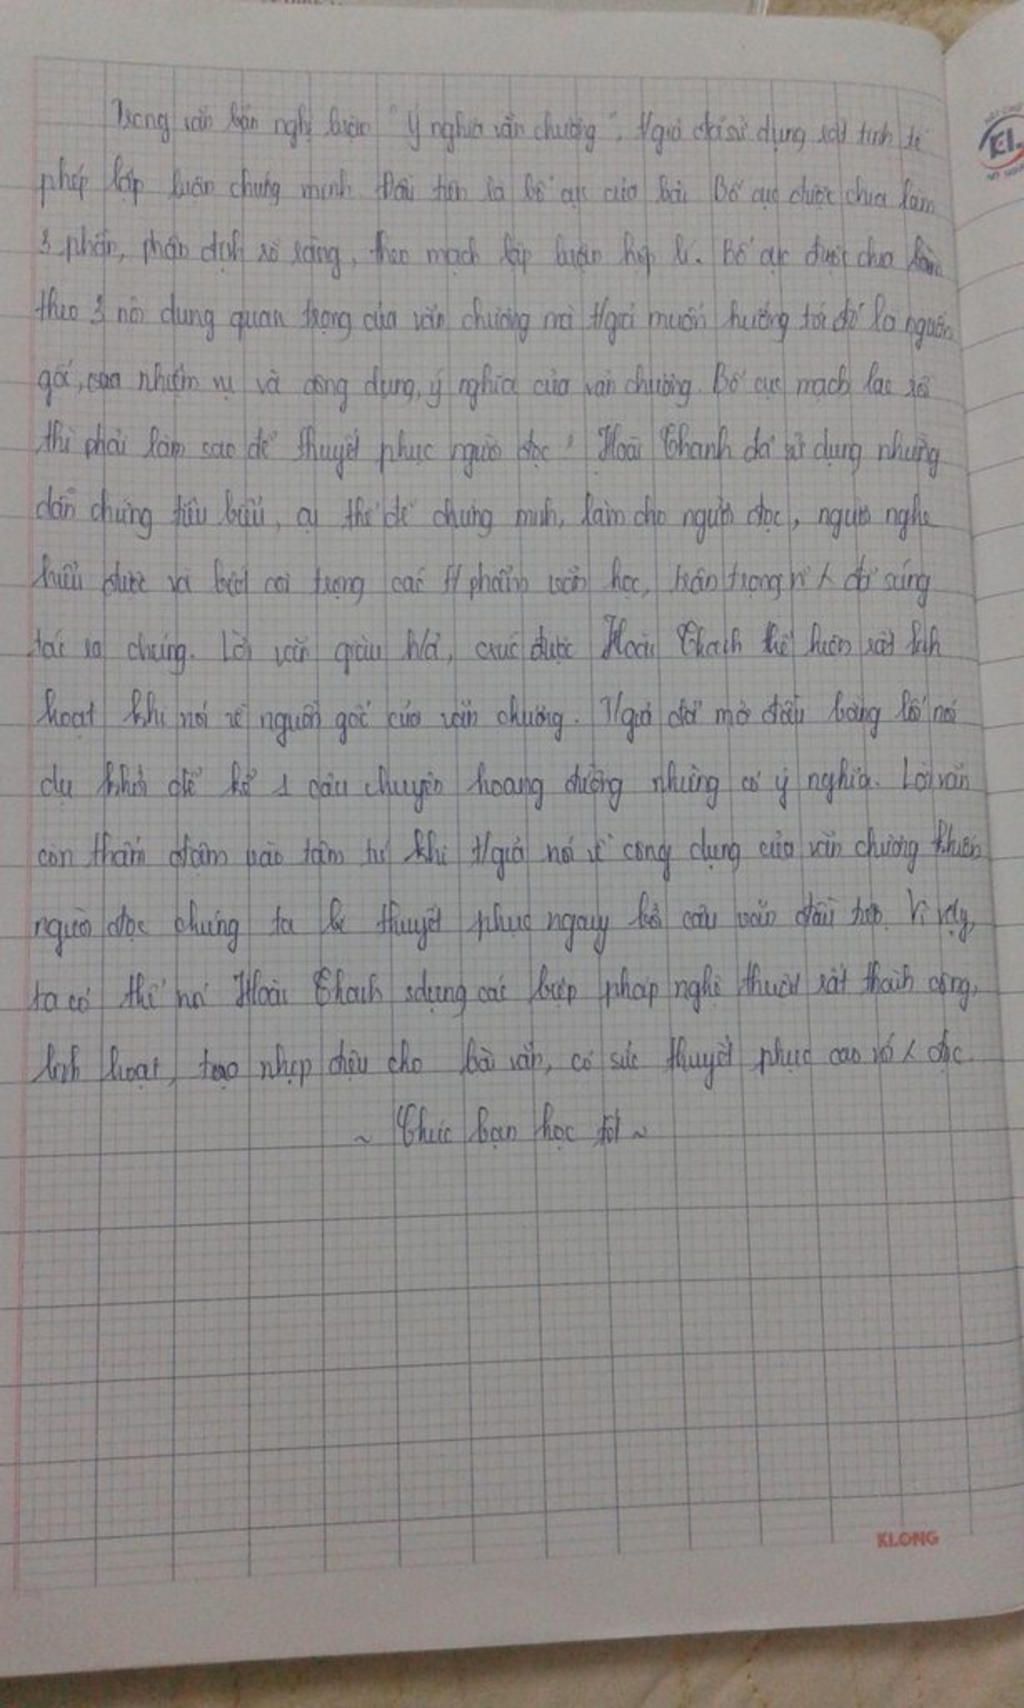 Trong văn bản nghị luận "Ý nghĩa văn chương", t/giả đã sử dụng rất tinh tế
phép lập luận chứng minh. Đầu tiên là bố cục của bài. Bố cục được chia làm
3 phần, phân định rõ ràng, theo mạch lập luận hợp lí. Bố cục được chia làm
theo 3 nội dung quan trọng của văn chương mà t/giả muốn hướng tới đó là nguồn
gốc, nhiệm vụ và công dụng, ý nghĩa của văn chương. Bố cục mạch lạc rồi
thì phải làm sao để thuyết phục người đọc? Hoài Thanh đã sử dụng những
dẫn chứng tiêu biểu, cụ thể để chứng minh, làm cho người đọc, người nghe
hiểu được và biết coi trọng các t/phẩm văn học, trân trọng đã sáng
tác ra chúng. Lời văn giàu h/ả, cxúc được Hoài Thanh thể hiện rất linh
hoạt khi nói về nguồn gốc của văn chương. T/giả đã mở đầu bằng lối nói
dụ khỉ để kể 1 câu chuyện hoang đường nhưng có ý nghĩa. Lời văn
còn thấm đậm vào tâm tư khi t/giả nói về công dụng của văn chương khiến
người đọc chúng ta bị thuyết phục ngay từ câu văn đầu tiên. Vì vậy,
ta có thể nói Hoài Thanh sdụng các biện pháp nghệ thuật rất thành công,
linh hoạt, tạo nhịp điệu cho bài văn, có sức thuyết phục cao đọc.
~ Chúc bạn học tốt ~
KLONG